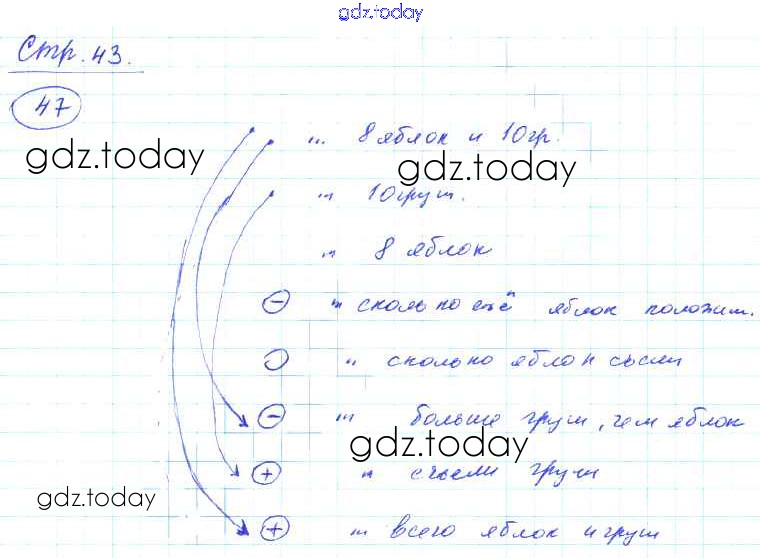 gdz.today
Стр. 43.
47
... 8 яблок и 10 гр.
gdz.today
gdz.today
... 10 груш.
... 8 яблок
− " сколько ещё яблок положим.
" сколько яблок съели
− " больше груш, чем яблок
gdz.today
+ " съели груш
gdz.today
+ " всего яблок и груш